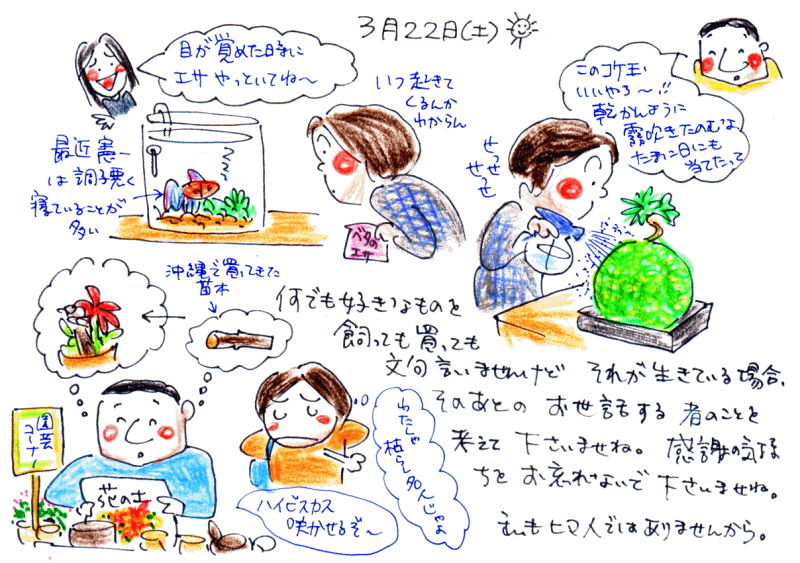 3月22日(土)
目が覚めた時に
エサ やっといてね〜
最近 憲一
は 調子悪く
寝ていることが
多い
いつ起きて
くるんか
わからん
ベタの
エサ
せっせ
せっせ
このコケ玉
いいやろ〜!!
乾かんように
霧吹きたのむな
たまに日にも
当てたって
沖縄で買ってきた
苗木
何でも好きなものを
飼っても買っても
文句言いませんけど それが生きている場合、
そのあとの お世話する 者のことを
考えて 下さいませね。 感謝の気持
ちを お忘れないで 下さいませね。
園芸
コーナー
花の土
ハイビスカス
咲かせるぞ〜
わたしゃ
枯らし名人じゃよ
ヒマ人ではありませんから。